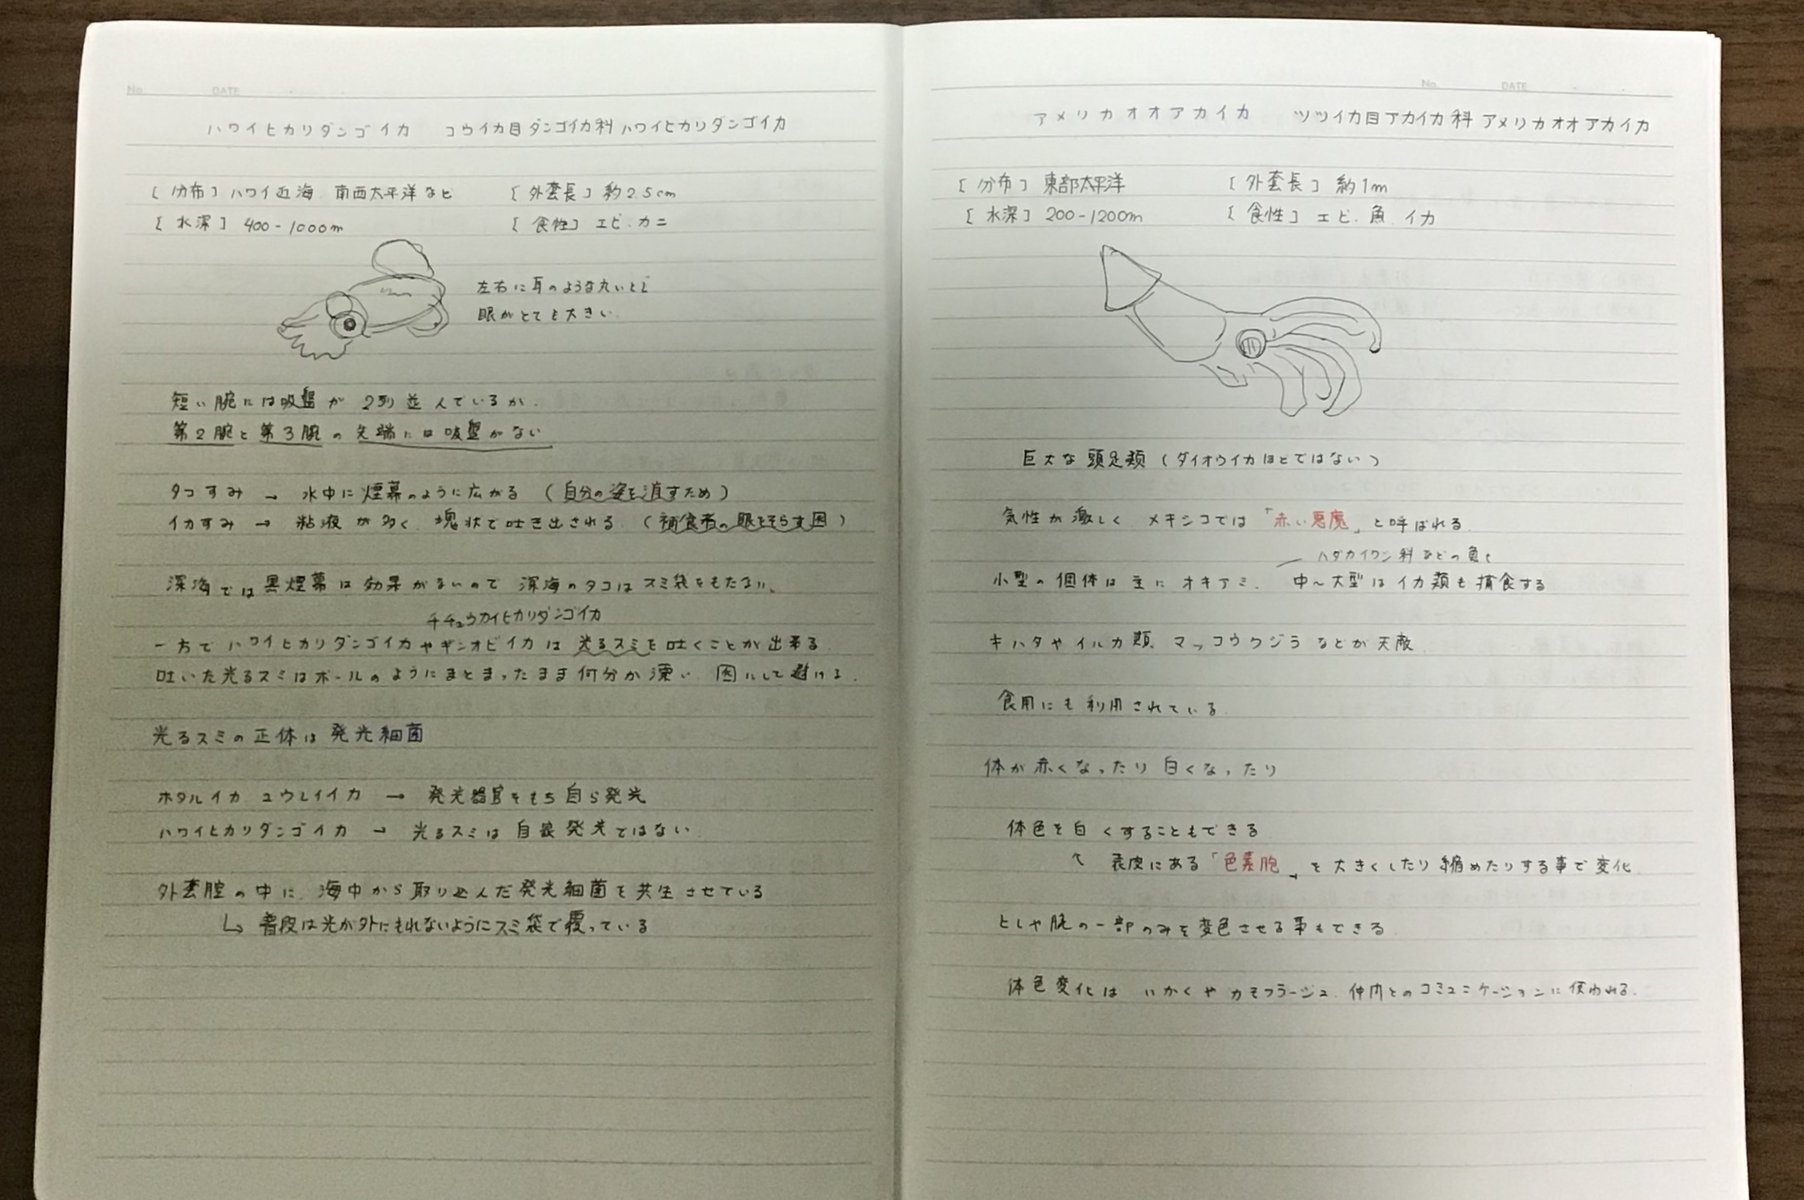 No.
DATE
ハワイヒカリダンゴイカ コウイカ目ダンゴイカ科ハワイヒカリダンゴイカ
[分布] ハワイ近海 南西太平洋など [外套長] 約2.5cm
[水深] 400-1000m [食性] エビ.カニ
左右に耳のような丸いヒレ
眼がとても大きい.
短い腕には吸盤が2列並んでいるが.
第2腕と第3腕の先端には吸盤がない
タコすみ → 水中に煙幕のように広がる (自分の姿を消すため)
イカすみ → 粘液が多く、塊状で吐き出される (捕食者の眼をそらす囮)
深海では黒煙幕は効果がないので 深海のタコはスミ袋をもたない、
チチュウカイヒカリダンゴイカ
一方でハワイヒカリダンゴイカやギンオビイカは光るスミを吐くことが出来る.
吐いた光るスミはボールのようにまとまったまま何分か漂い、囮にして避ける.
光るスミの正体は発光細菌
ホタルイカ ユウレイイカ → 発光器官をもち自ら発光
ハワイヒカリダンゴイカ → 光るスミは自ら発光ではない.
外套腔の中に、海中から取り込んだ発光細菌を共生させている
↳ 普段は光が外にもれないようにスミ袋で覆っている
No.
DATE
アメリカオオアカイカ ツツイカ目アカイカ科アメリカオオアカイカ
[分布] 東部太平洋 [外套長] 約1m
[水深] 200-1200m [食性] エビ.魚.イカ
巨大な頭足類(ダイオウイカほどではない)
気性が激しく メキシコでは「赤い悪魔」と呼ばれる.
ハダカイワシ科などの魚や
小型の個体は主にオキアミ、 中〜大型はイカ類も捕食する
キハダやイルカ類、マッコウクジラなどが天敵
食用にも利用されている.
体が赤くなったり白くなったり
体色を白くすることもできる
↖ 表皮にある「色素胞」を大きくしたり縮めたりする事で変化.
ヒレや腕の一部のみを変色させる事もできる.
体色変化は いかくやカモフラージュ、仲間とのコミュニケーションに使われる.